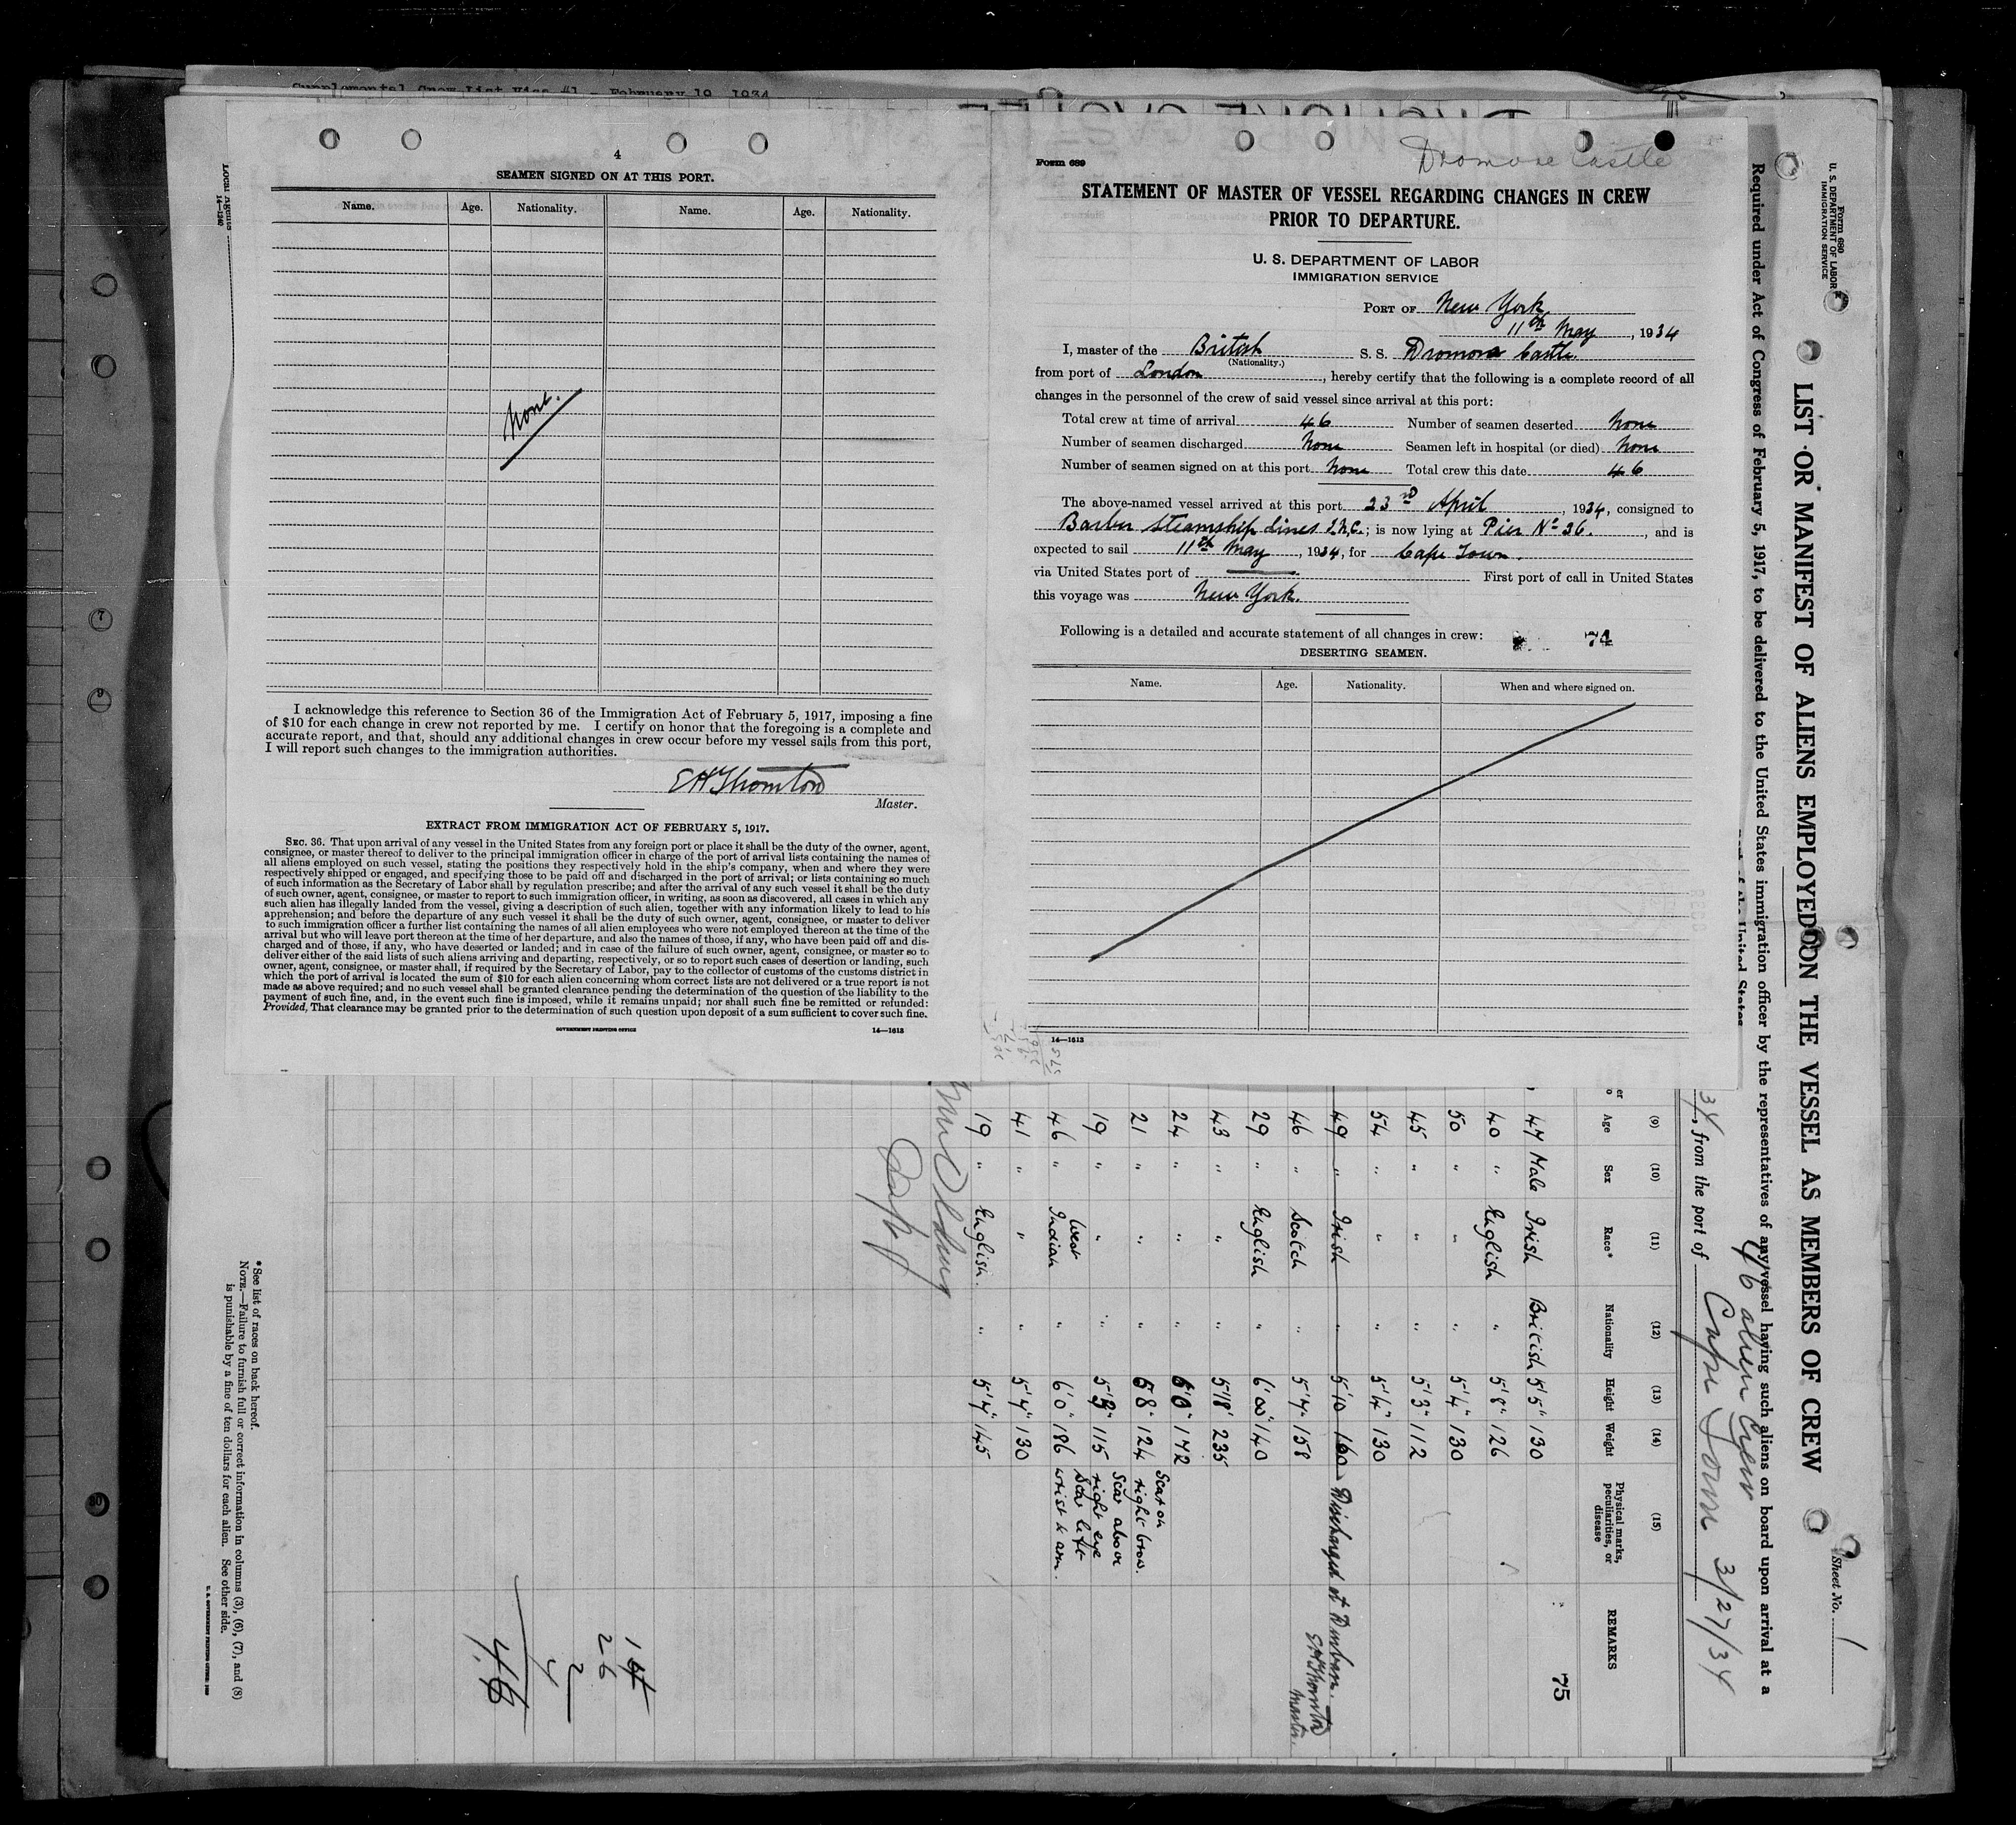 Supplemental Crew List Visa #1 - February 19, 1934
4
SEAMEN SIGNED ON AT THIS PORT.
Name. Age. Nationality. Name. Age. Nationality.
None.
I acknowledge this reference to Section 36 of the Immigration Act of February 5, 1917, imposing a fine
of $10 for each change in crew not reported by me. I certify on honor that the foregoing is a complete and
accurate report, and that, should any additional changes in crew occur before my vessel sails from this port,
I will report such changes to the immigration authorities.
E H Thornton
Master.
EXTRACT FROM IMMIGRATION ACT OF FEBRUARY 5, 1917.
SEC. 36. That upon arrival of any vessel in the United States from any foreign port or place it shall be the duty of the owner, agent,
consignee, or master thereof to deliver to the principal immigration officer in charge of the port of arrival lists containing the names of
all aliens employed on such vessel, stating the positions they respectively hold in the ship's company, when and where they were
respectively shipped or engaged, and specifying those to be paid off and discharged in the port of arrival; or lists containing so much
of such information as the Secretary of Labor shall by regulation prescribe; and after the arrival of any such vessel it shall be the duty
of such owner, agent, consignee, or master to report to such immigration officer, in writing, as soon as discovered, all cases in which any
such alien has illegally landed from the vessel, giving a description of such alien, together with any information likely to lead to his
apprehension; and before the departure of any such vessel it shall be the duty of such owner, agent, consignee, or master to deliver
to such immigration officer a further list containing the names of all alien employees who were not employed thereon at the time of the
arrival but who will leave port thereon at the time of her departure, and also the names of those, if any, who have been paid off and dis-
charged and of those, if any, who have deserted or landed; and in case of the failure of such owner, agent, consignee, or master so to
deliver either of the said lists of such aliens arriving and departing, respectively, or so to report such cases of desertion or landing, such
owner, agent, consignee, or master shall, if required by the Secretary of Labor, pay to the collector of customs of the customs district in
which the port of arrival is located the sum of $10 for each alien concerning whom correct lists are not delivered or a true report is not
made as above required; and no such vessel shall be granted clearance pending the determination of the question of the liability to the
payment of such fine, and, in the event such fine is imposed, while it remains unpaid; nor shall such fine be remitted or refunded:
Provided, That clearance may be granted prior to the determination of such question upon deposit of a sum sufficient to cover such fine.
GOVERNMENT PRINTING OFFICE 14—1613
Local Agents
14—1240
Form 689
Dromore Castle
STATEMENT OF MASTER OF VESSEL REGARDING CHANGES IN CREW
PRIOR TO DEPARTURE.
U. S. DEPARTMENT OF LABOR
IMMIGRATION SERVICE
PORT OF New York
11th May, 1934
I, master of the British S. S. Dromore Castle.
(Nationality.)
from port of London, hereby certify that the following is a complete record of all
changes in the personnel of the crew of said vessel since arrival at this port:
Total crew at time of arrival 46 Number of seamen deserted None
Number of seamen discharged None Seamen left in hospital (or died) None
Number of seamen signed on at this port None Total crew this date 46
The above-named vessel arrived at this port 23rd April, 1934, consigned to
Barber Steamship Lines INC.; is now lying at Pier No 36., and is
expected to sail 11th May, 1934, for Cape Town.
via United States port of First port of call in United States
this voyage was New York.
Following is a detailed and accurate statement of all changes in crew: 74
DESERTING SEAMEN.
Name. Age. Nationality. When and where signed on.
14—1613
Form 680
U. S. DEPARTMENT OF LABOR
IMMIGRATION SERVICE
Sheet No. 1
LIST OR MANIFEST OF ALIENS EMPLOYED ON THE VESSEL AS MEMBERS OF CREW
Required under Act of Congress of February 5, 1917, to be delivered to the United States immigration officer by the representatives of any vessel having such aliens on board upon arrival at a
port of the United States
46 alien crew
34, from the port of Cape Town 3/27/34
(9) (10) (11) (12) (13) (14) (15)
Age Sex Race* Nationality Height Weight Physical marks, peculiarities, or disease REMARKS
75
47 Male Irish British 5'5" 130
40 " English " 5'8" 126
50 " " " 5'4" 130
45 " " " 5'3" 112
54 " " " 5'4" 130
49 " Irish " 5'10 160 Discharged at Durban.
E H Thornton
Master.
46 " Scotch " 5'7" 158
29 " English " 6'00" 140
43 " " " 5'8" 235
24 " " " 172
21 " " " 5 8" 124 Scar on right brow.
19 " " " 115 Scar above right eye
46 " West Indian " 6'0" 186 Scar left wrist & arm.
41 " " " 5'4" 130
19 " English " 5'7" 145
14
26
2
4
46
*See list of races on back hereof.
NOTE.—Failure to furnish full or correct information in columns (3), (6), (7), and (8)
is punishable by a fine of ten dollars for each alien. See other side.
U. S. GOVERNMENT PRINTING OFFICE